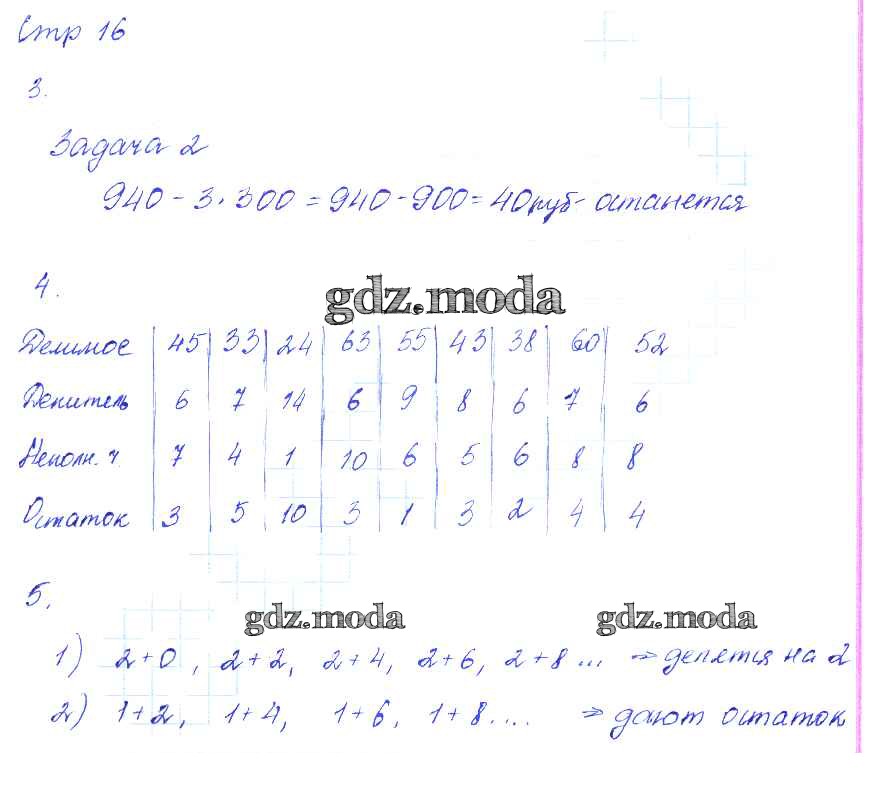 Стр 16
3.
Задача 2
940 - 3 · 300 = 940 - 900 = 40 руб - останется
4.
gdz.moda
Делимое | 45 | 33 | 24 | 63 | 55 | 43 | 38 | 60 | 52
Делитель | 6 | 7 | 14 | 6 | 9 | 8 | 6 | 7 | 6
Неполн. ч. | 7 | 4 | 1 | 10 | 6 | 5 | 6 | 8 | 8
Остаток | 3 | 5 | 10 | 3 | 1 | 3 | 2 | 4 | 4
5.
gdz.moda gdz.moda
1) 2+0, 2+2, 2+4, 2+6, 2+8... ⇒ делятся на 2
2) 1+2, 1+4, 1+6, 1+8.... ⇒ дают остаток